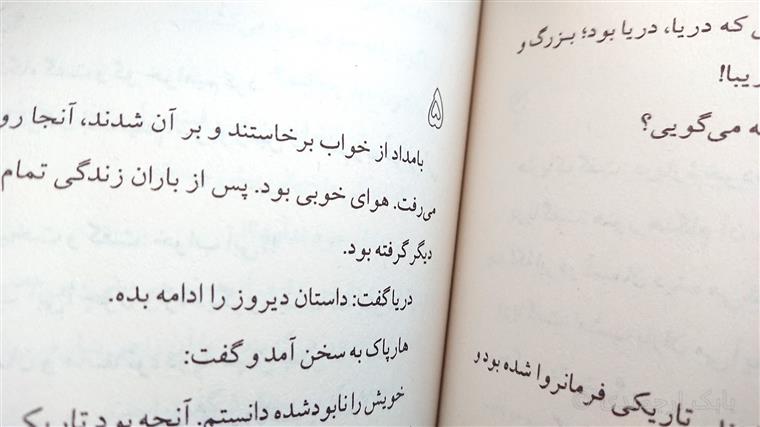 که دریا، دریا بود؛ بزرگ و
می‌گویی؟
تاریکی فرمانروا شده بود و
۵
بامداد از خواب برخاستند و بر آن شدند، آنجا رو
می‌رفت. هوای خوبی بود. پس از باران زندگی تمام
دیگر گرفته بود.
دریا گفت: داستان دیروز را ادامه بده.
هارپاک به سخن آمد و گفت:
خویش را نابودشده دانستم. آنچه بود تاریک